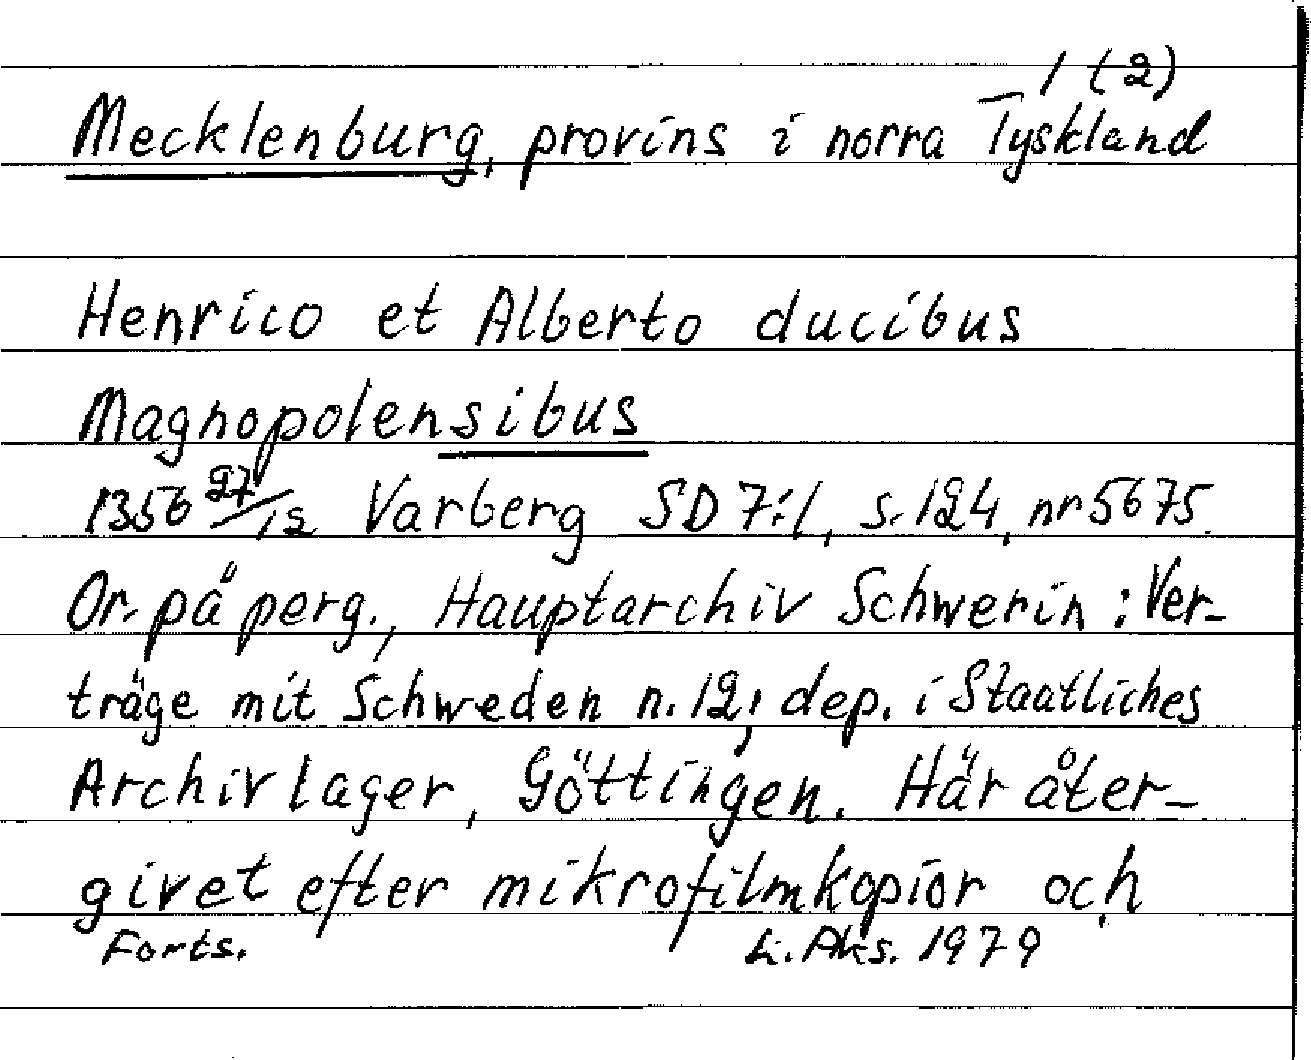 1 (2)
Mecklenburg, provins i norra Tyskland
Henrico et Alberto ducibus
Magnopolensibus
1356 27/12 Varberg SD 7:1, s. 124, nr 5675.
Or. på perg., Hauptarchiv Schwerin: Ver-
träge mit Schweden n. 12, dep. i Staatliches
Archivlager, Göttingen. Här åter-
givet efter mikrofilmkopior och
Forts. L. Aks. 1979